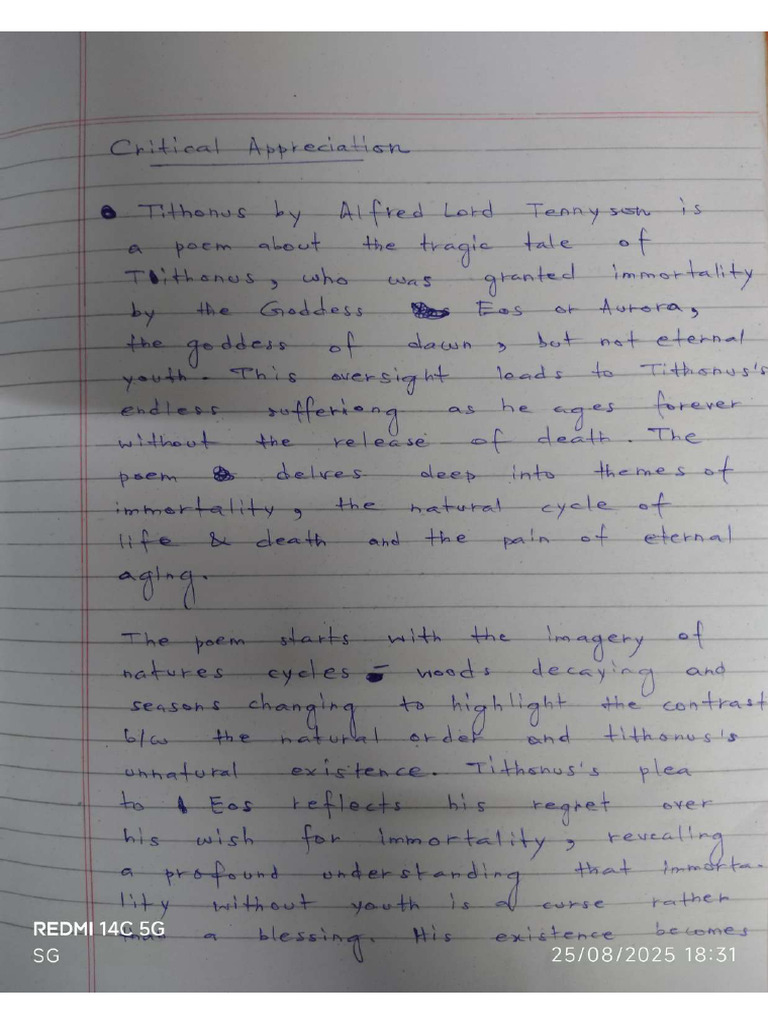 Critical Appreciation
Tithonus by Alfred Lord Tennyson is
a poem about the tragic tale of
Tithonus, who was granted immortality
by the Goddess Eos or Aurora,
the goddess of dawn, but not eternal
youth. This oversight leads to Tithonus's
endless sufferiong as he ages forever
without the release of death. The
poem delves deep into themes of
immortality, the natural cycle of
life & death and the pain of eternal
aging.
The poem starts with the imagery of
natures cycles - woods decaying and
seasons changing to highlight the contrast
b/w the natural order and tithonus's
unnatural existence. Tithonus's plea
to Eos reflects his regret over
his wish for immortality, revealing
a profound understanding that immorta-
lity without youth is a curse rather
than a blessing. His existence becomes
REDMI 14C 5G
SG
25/08/2025 18:31